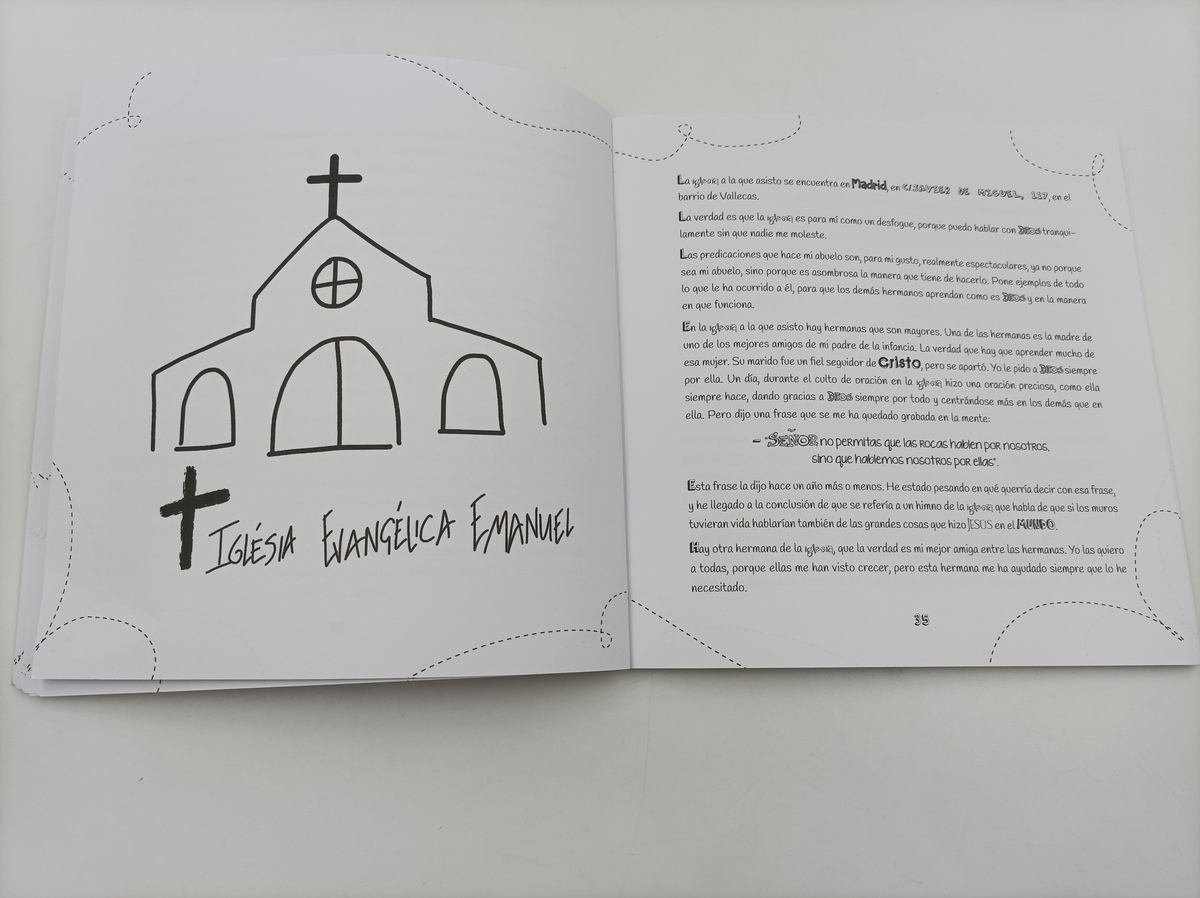 IGLÉSIA EVANGÉLICA EMANUEL
La iglesia a la que asisto se encuentra en Madrid, en C/JAVIER DE MIGUEL, 117, en el
barrio de Vallecas.
La verdad es que la iglesia es para mí como un desfogue, porque puedo hablar con DIOS tranqui-
lamente sin que nadie me moleste.
Las predicaciones que hace mi abuelo son, para mi gusto, realmente espectaculares, ya no porque
sea mi abuelo, sino porque es asombrosa la manera que tiene de hacerlo. Pone ejemplos de todo
lo que le ha ocurrido a él, para que los demás hermanos aprendan como es DIOS y en la manera
en que funciona.
En la iglesia a la que asisto hay hermanas que son mayores. Una de las hermanas es la madre de
uno de los mejores amigos de mi padre de la infancia. La verdad que hay que aprender mucho de
esa mujer. Su marido fue un fiel seguidor de Cristo, pero se apartó. Yo le pido a DIOS siempre
por ella. Un día, durante el culto de oración en la iglesia hizo una oración preciosa, como ella
siempre hace, dando gracias a DIOS siempre por todo y centrándose más en los demás que en
ella. Pero dijo una frase que se me ha quedado grabada en la mente:
– "SEÑOR no permitas que las rocas hablen por nosotros,
sino que hablemos nosotros por ellas".
Esta frase la dijo hace un año más o menos. He estado pesando en qué querría decir con esa frase,
y he llegado a la conclusión de que se refería a un himno de la iglesia que habla de que si los muros
tuvieran vida hablarían también de las grandes cosas que hizo JESÚS en el MUNDO.
Hay otra hermana de la iglesia, que la verdad es mi mejor amiga entre las hermanas. Yo las quiero
a todas, porque ellas me han visto crecer, pero esta hermana me ha ayudado siempre que lo he
necesitado.
35